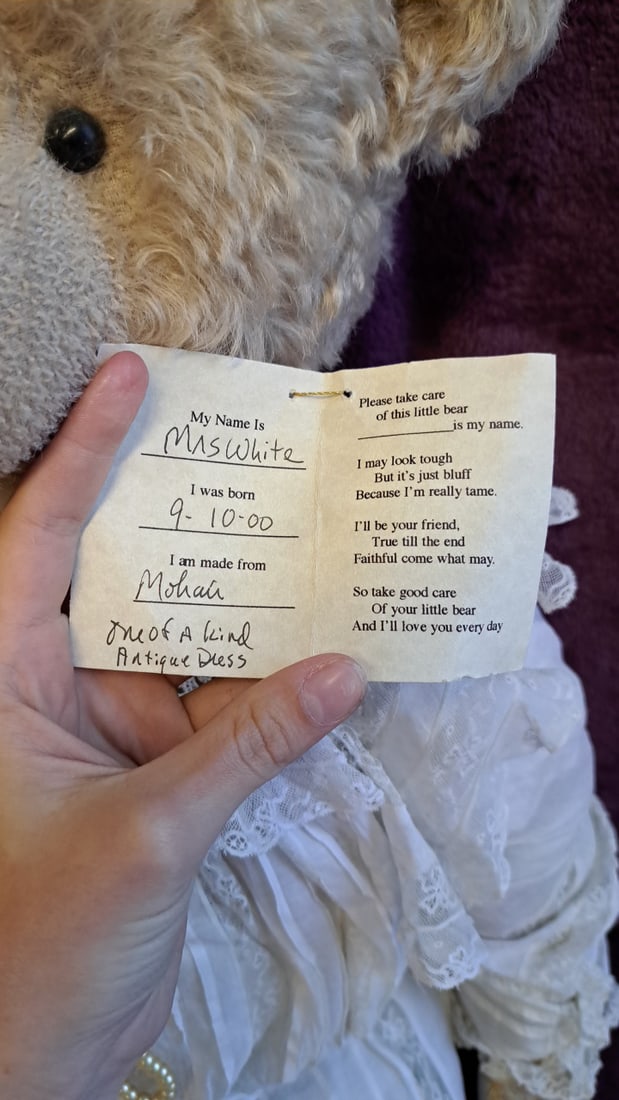 My Name Is
Mrs White
I was born
9-10-00
I am made from
Mohair
One of A kind
Antique Dress
Please take care
of this little bear
____________is my name.
I may look tough
But it's just bluff
Because I'm really tame.
I'll be your friend,
True till the end
Faithful come what may.
So take good care
Of your little bear
And I'll love you every day